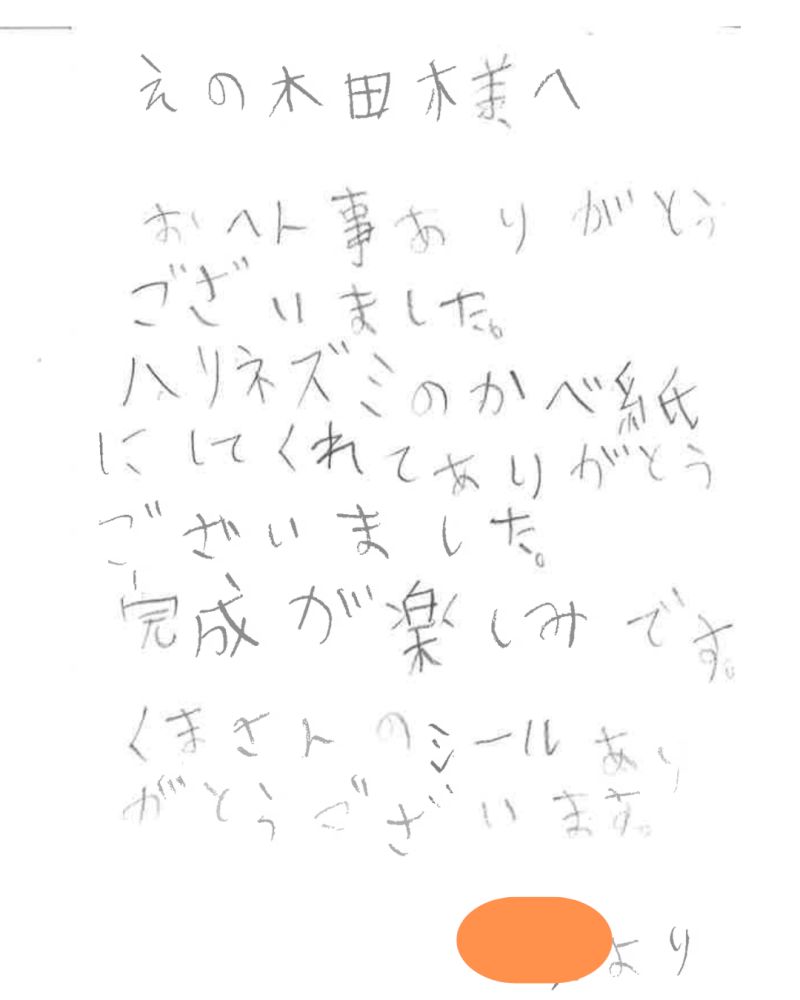 えの木田様へ
おへん事ありがとう
ございました。
ハリネズミのかべ紙
にしてくれてありがとう
ございました。
完成が楽しみです。
くまさんのシールあり
がとうございます。
より